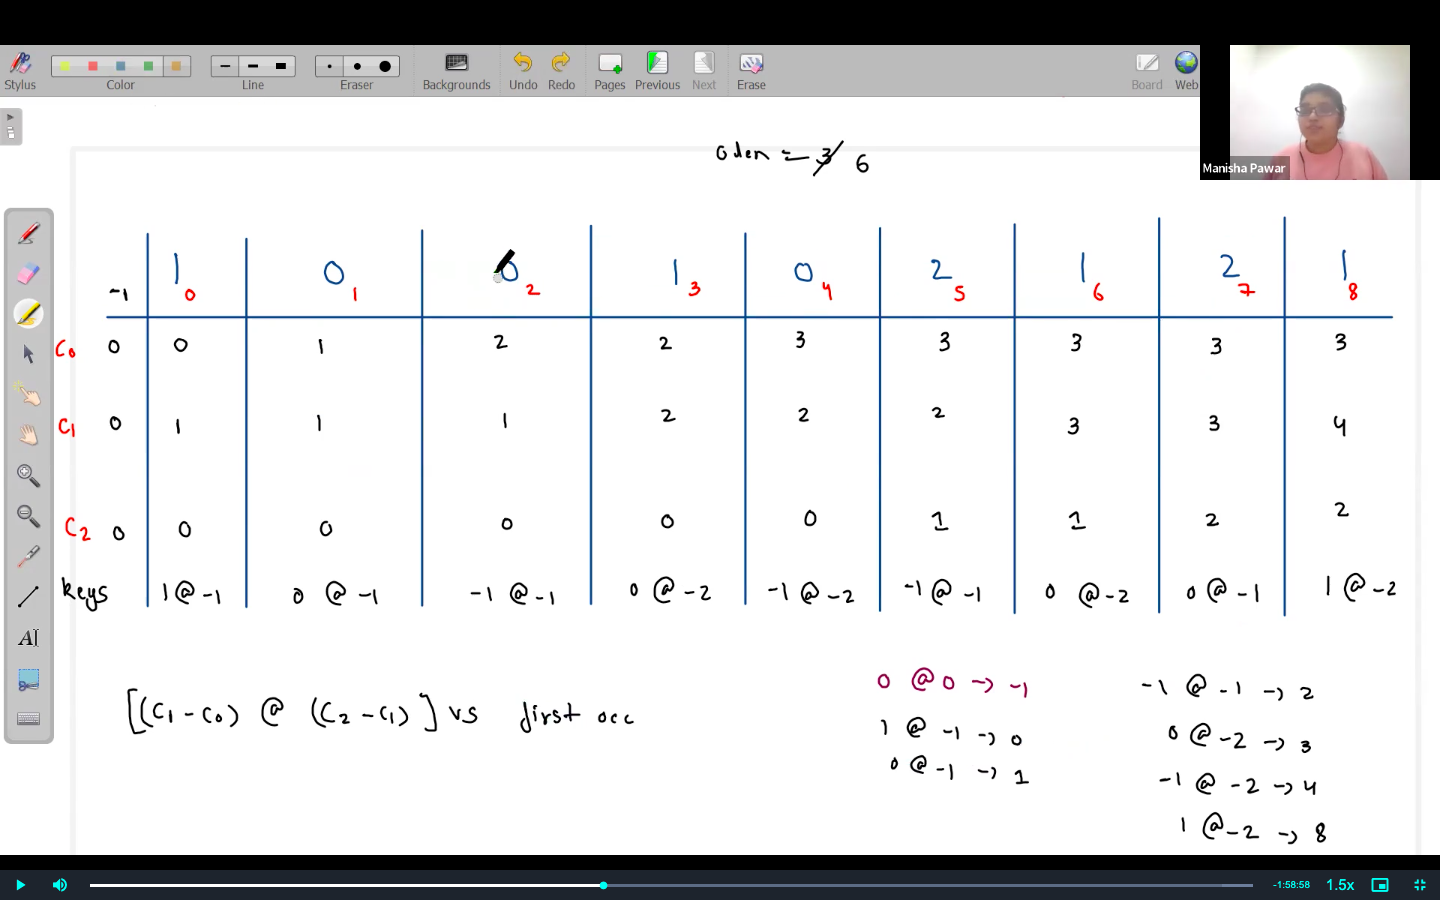 Stylus Color Line Eraser Backgrounds Undo Redo Pages Previous Next Erase Board Web
Manisha Pawar
olen = 3 6
-1 1 0 0 1 0 2 1 3 0 4 2 5 1 6 2 7 1 8
C0 0 0 1 2 2 3 3 3 3 3
C1 0 1 1 1 2 2 2 3 3 4
C2 0 0 0 0 0 0 1 1 2 2
keys 1 @ -1 0 @ -1 -1 @ -1 0 @ -2 -1 @ -2 -1 @ -1 0 @ -2 0 @ -1 1 @ -2
[(C1 - C0) @ (C2 - C1)] vs first occ
0 @ 0 → -1
1 @ -1 → 0
0 @ -1 → 1
-1 @ -1 → 2
0 @ -2 → 3
-1 @ -2 → 4
1 @ -2 → 8
-1:58:58 1.5x